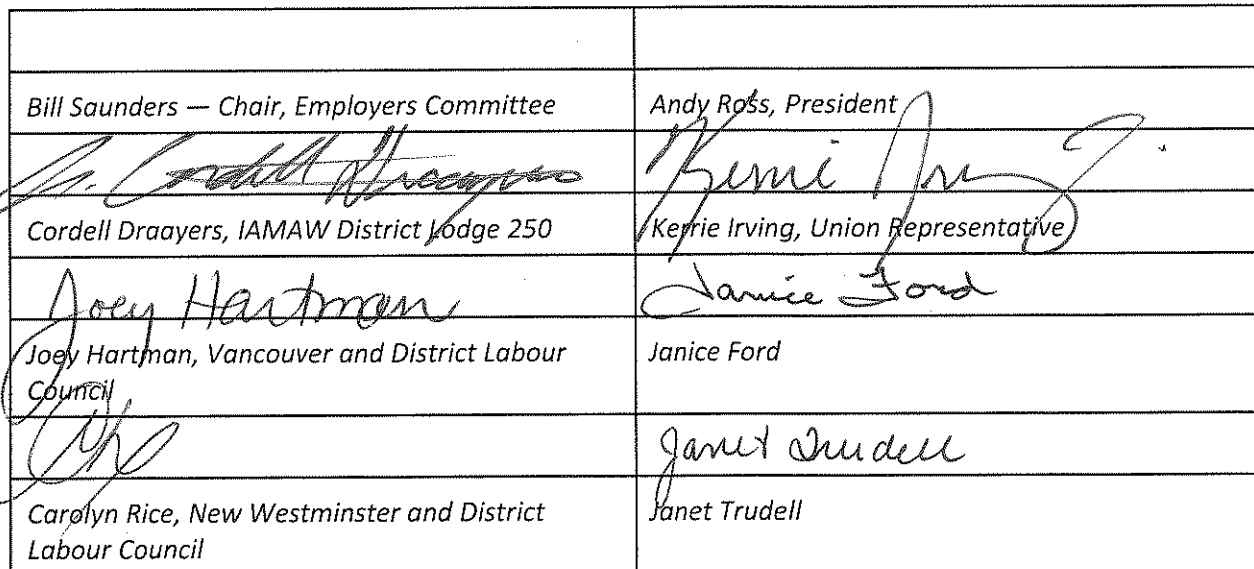 Bill Saunders — Chair, Employers Committee
Andy Ross, President
Cordell Draayers
Kerrie Irving
Cordell Draayers, IAMAW District Lodge 250
Kerrie Irving, Union Representative
Joey Hartman
Janice Ford
Joey Hartman, Vancouver and District Labour
Council
Janice Ford
Janet Trudell
Carolyn Rice, New Westminster and District
Labour Council
Janet Trudell